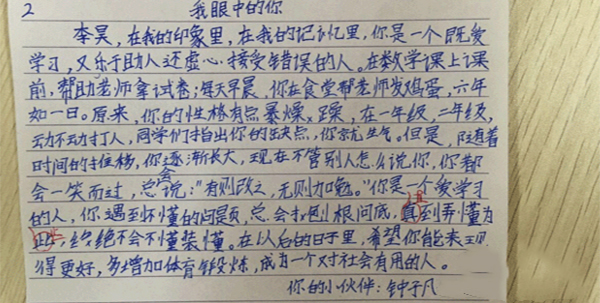 2
我眼中的你
李昊，在我的印象里，在我的记忆里，你是一个既爱
学习，又乐于助人还虚心接受错误的人。在数学课上课
前，帮助老师拿试卷；每天早晨，你在食堂帮老师发鸡蛋，六年
如一日。原来，你的性格有点暴躁，在一年级，二年级，
动不动打人，同学们指出你的缺点，你就生气。但是，随着
时间的推移，你逐渐长大，现在不管别人怎么说你，你都
会一笑而过，总会说："有则改之，无则加勉。"你是一个爱学习
的人，你遇到不懂的问题，总会刨根问底，直到弄懂为
止，绝不会不懂装懂。在以后的日子里，希望你能表现
得更好，多增加体育锻炼，成为一个对社会有用的人。
你的小伙伴：钟子凡